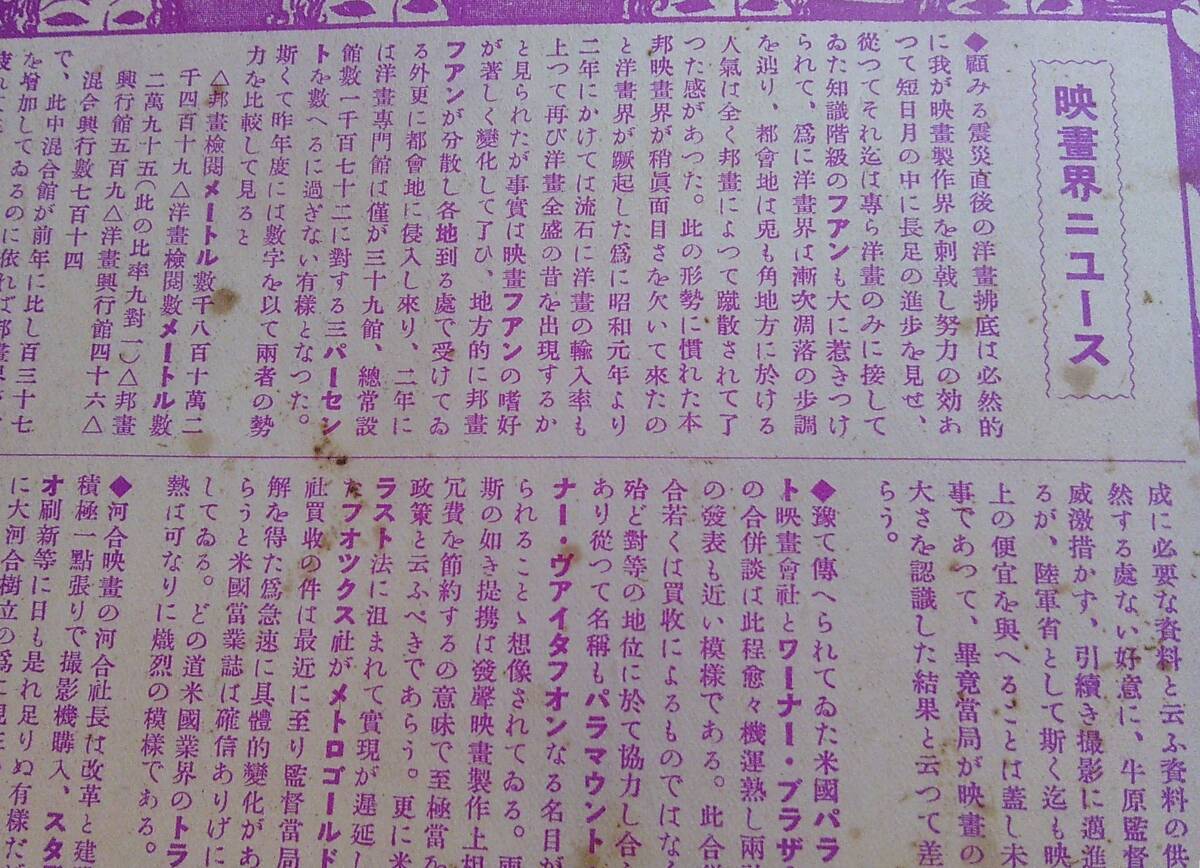 映畫界ニュース
◆顧みる震災直後の洋畫拂底は必然的
に我が映畫製作界を刺戟し努力の効あ
つて短日月の中に長足の進歩を見せ、
從つてそれ迄は專ら洋畫のみに接して
ゐた知識階級のフアンも大に惹きつけ
られて、爲に洋畫界は漸次凋落の歩調
を辿り、都會地は兎も角地方に於ける
人氣は全く邦畫によつて蹴散されて了
つた感があつた。此の形勢に慣れた本
邦映畫界が稍眞面目さを欠いて來たの
と洋畫界が蹶起した爲に昭和元年より
二年にかけては流石に洋畫の輸入率も
上つて再び洋畫全盛の昔を出現するか
と見られたが事實は映畫フアンの嗜好
が著しく變化して了ひ、地方的に邦畫
フアンが分散し各地到る處で受けてゐ
る外更に都會地に侵入し來り、二年に
は洋畫專門館は僅が三十九館、總常設
館數一千百七十二に對する三パーセン
トを數へるに過ぎない有樣となつた。
斯くて昨年度には數字を以て兩者の勢
力を比較して見ると
△邦畫檢閲メートル數千八百十萬二
千四百十九△洋畫檢閲數メートル數
二萬九十五(此の比率九對一)△邦畫
興行館五百九△洋畫興行館四十六△
混合興行數七百十四
で、此中混合館が前年に比し百三十七
を增加してゐるのに依れば邦畫界
成に必要な資料と云ふ資料の供
然する處ない好意に、牛原監督
威激措かず、引續き撮影に邁進
るが、陸軍省として斯く迄も映
上の便宜を與へることは蓋し未
事であつて、畢竟當局が映畫の
大さを認識した結果と云つて差
らう。
◆豫て傳へられてゐた米國パラ
ト映畫會社とワーナー・ブラザ
の合併談は此程愈々機運熟し兩
の發表も近い模樣である。此合
合若くは買收によるものではな
殆ど對等の地位に於て協力し合
あり從つて名稱もパラマウント
ナー・ヴアイタフオンなる名目が
られることゝ想像されてゐる。兩
斯の如き提携は發聲映畫製作上相
冗費を節約するの意味で至極當を
政策と云ふべきであらう。更に米
ラスト法に沮まれて實現が遲延し
たフオツクス社がメトロゴールド
社買收の件は最近に至り監督當局
解を得た爲急速に具體的變化があ
らうと米國當業誌は確信ありげに
してゐる。どの道米國業界のトラ
熱は可なりに熾烈の模樣である。
◆河合映畫の河合社長は改革と建
積極一點張りで撮影機購入、スタ
オ刷新等に日も是れ足りぬ有樣だ
に大河合樹立の爲に現在